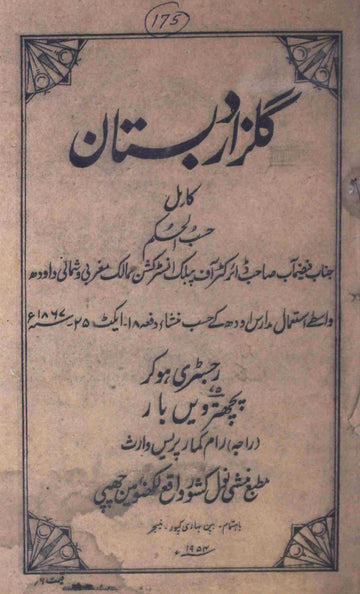 175
گلزار دبستان
کامل
حسب الحکم
جناب فیضمآب صاحب ڈائرکٹر آف پبلک انسٹرکشن ممالک مغربی و شمالی و اودھ
واسطے استعمال مدارس اودھ کے حسب منشاء دفعہ ۱۸- ایکٹ ۲۵ سنہ ۱۸۶۷ء
رجسٹری ہو کر
۷۵
پچھترویں بار
(راجہ) رام کمار پریس وارث
مطبع منشی نول کشور واقع لکھنؤ مین چھپی
باہتمام- بہاری کپور، منیجر
۱۹۵۴ء
قیمت